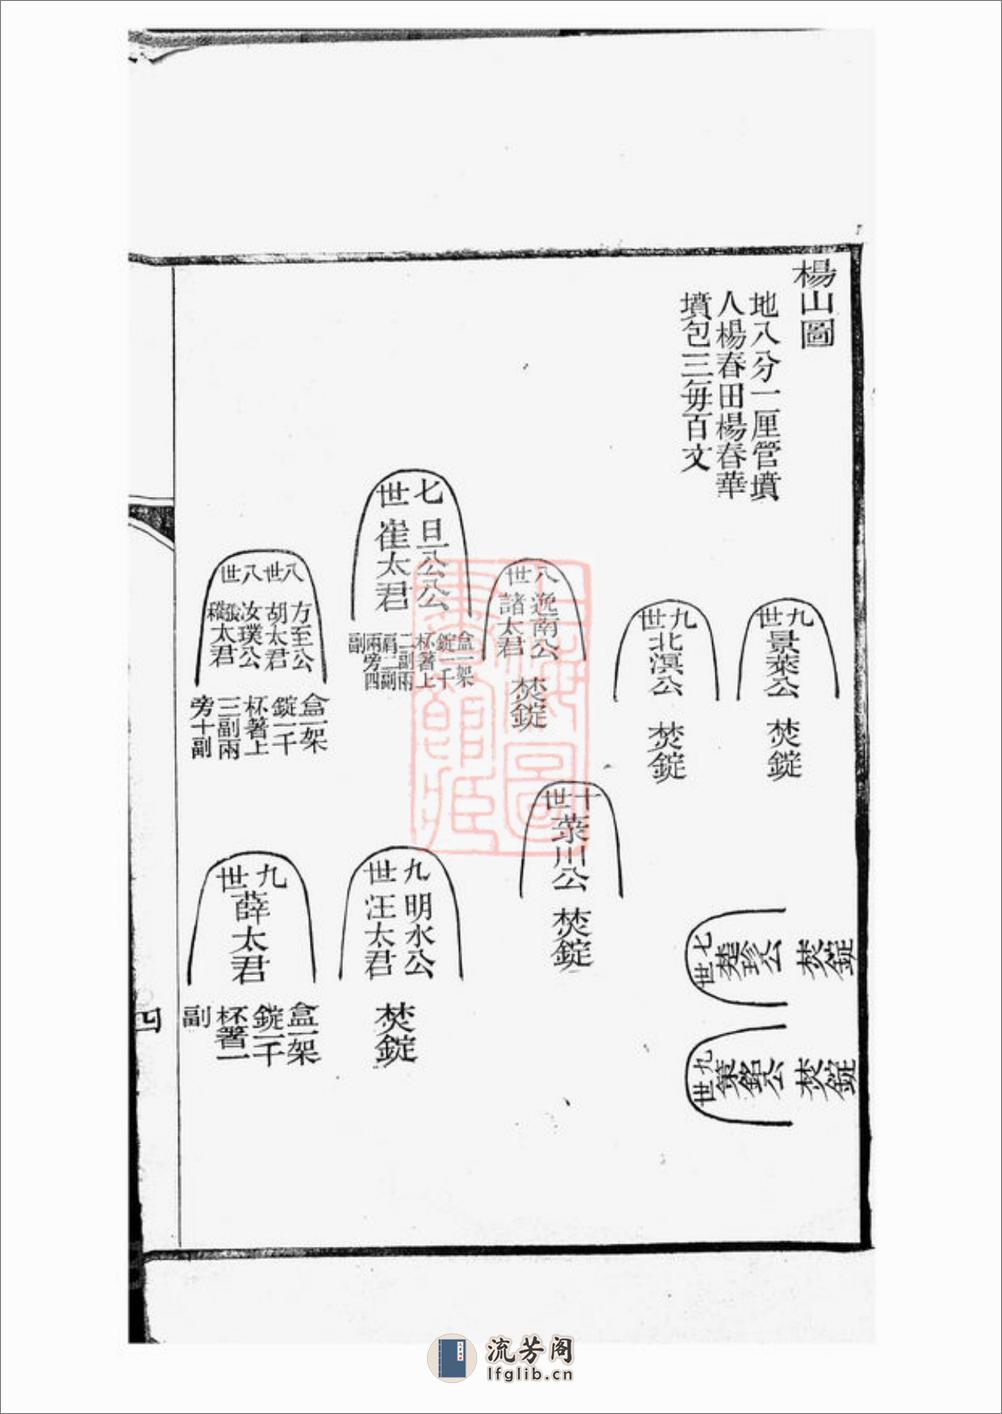 楊山圖
地八分一厘管墳
人楊春田楊春華
墳包三每百文
九世
景萊公
焚錠
九世
北溟公
焚錠
八世
逸南公
諸太君
焚錠
七世
旦公公
崔太君
盒一架
錠一千
杯箸上
二副兩
肩二副
兩旁四
副
八世
八世
方至公
胡太君
汝璞公
張太君
盒一架
錠一千
杯箸上
三副兩
旁十副
十世
萊川公
焚錠
七世
楚珍公
焚錠
九世
策銘公
焚錠
九世
明水公
汪太君
焚錠
九世
薛太君
盒一架
錠一千
杯箸一
副
四
上海圖
書館藏
流芳阁
lfglib.cn